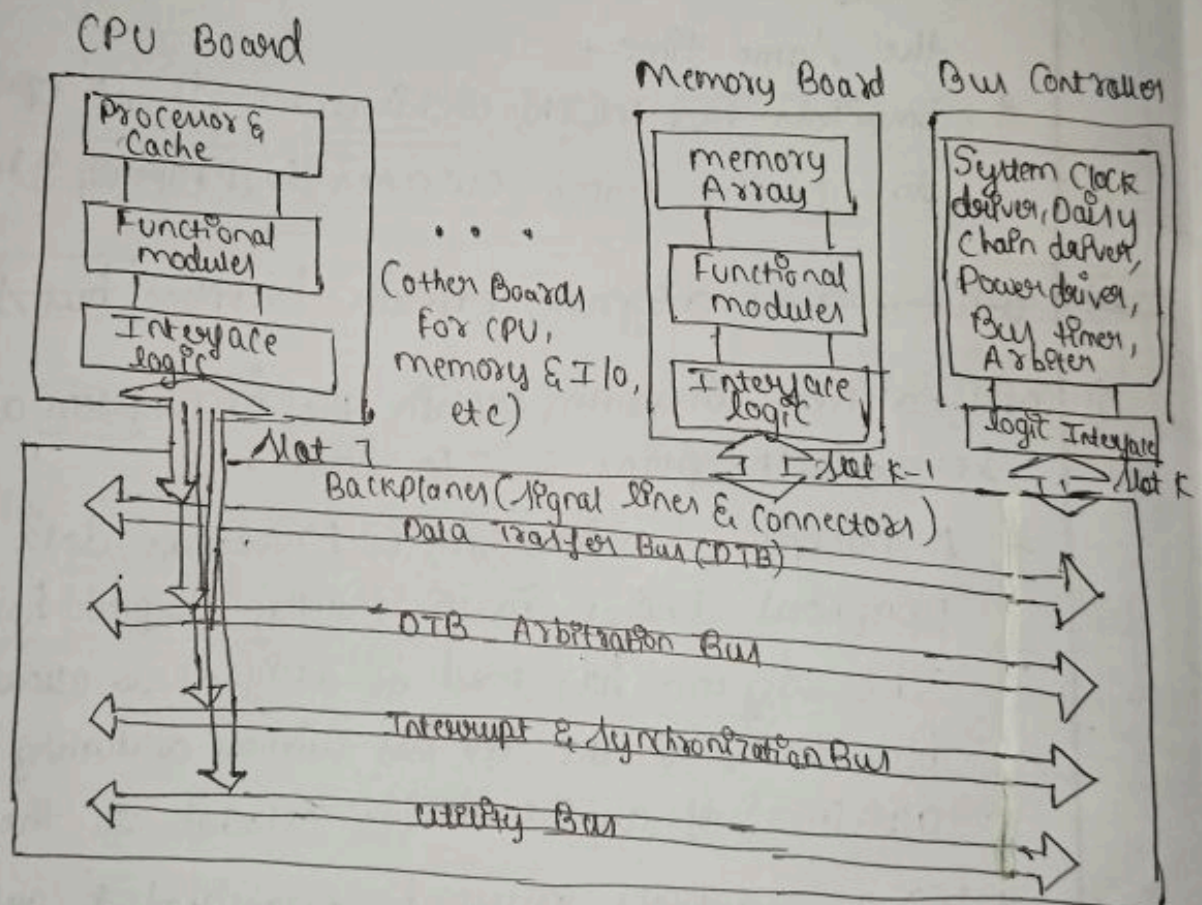 CPU Board
Processor &
Cache
Functional
modules
Interface
logic
Slot 1
. . .
(other Boards
for CPU,
memory & I/O,
etc)
Memory Board
memory
Array
Functional
modules
Interface
logic
Slot k-1
Bus Controller
System Clock
driver, Daisy
Chain driver,
Power driver,
Bus timer,
Arbiter
logic Interface
Slot k
Backplanes (signal lines & connectors)
Data Trasfer Bus (DTB)
DTB Arbitration Bus
Interrupt & Synchronization Bus
Utility Bus